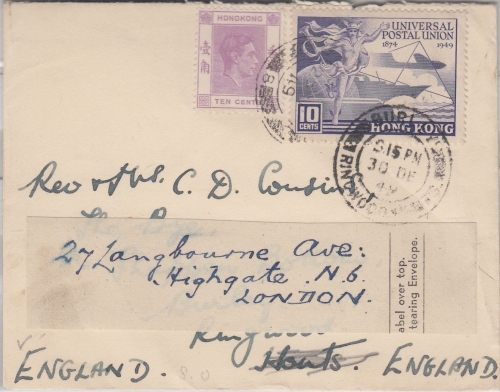 HONGKONG
壹角
TEN CENTS
UNIVERSAL
POSTAL UNION
1874 1949
10
CENTS
HONG KONG
BURLEY
RINGWOOD
6.15 PM
30 DE
49
Rev & Mrs. C. D. Cousins
The
27 Langbourne Ave:
Highgate N.6.
LONDON.
abel over top.
tearing Envelope.
Ringwood
Hants.
ENGLAND. ENGLAND.
8.0